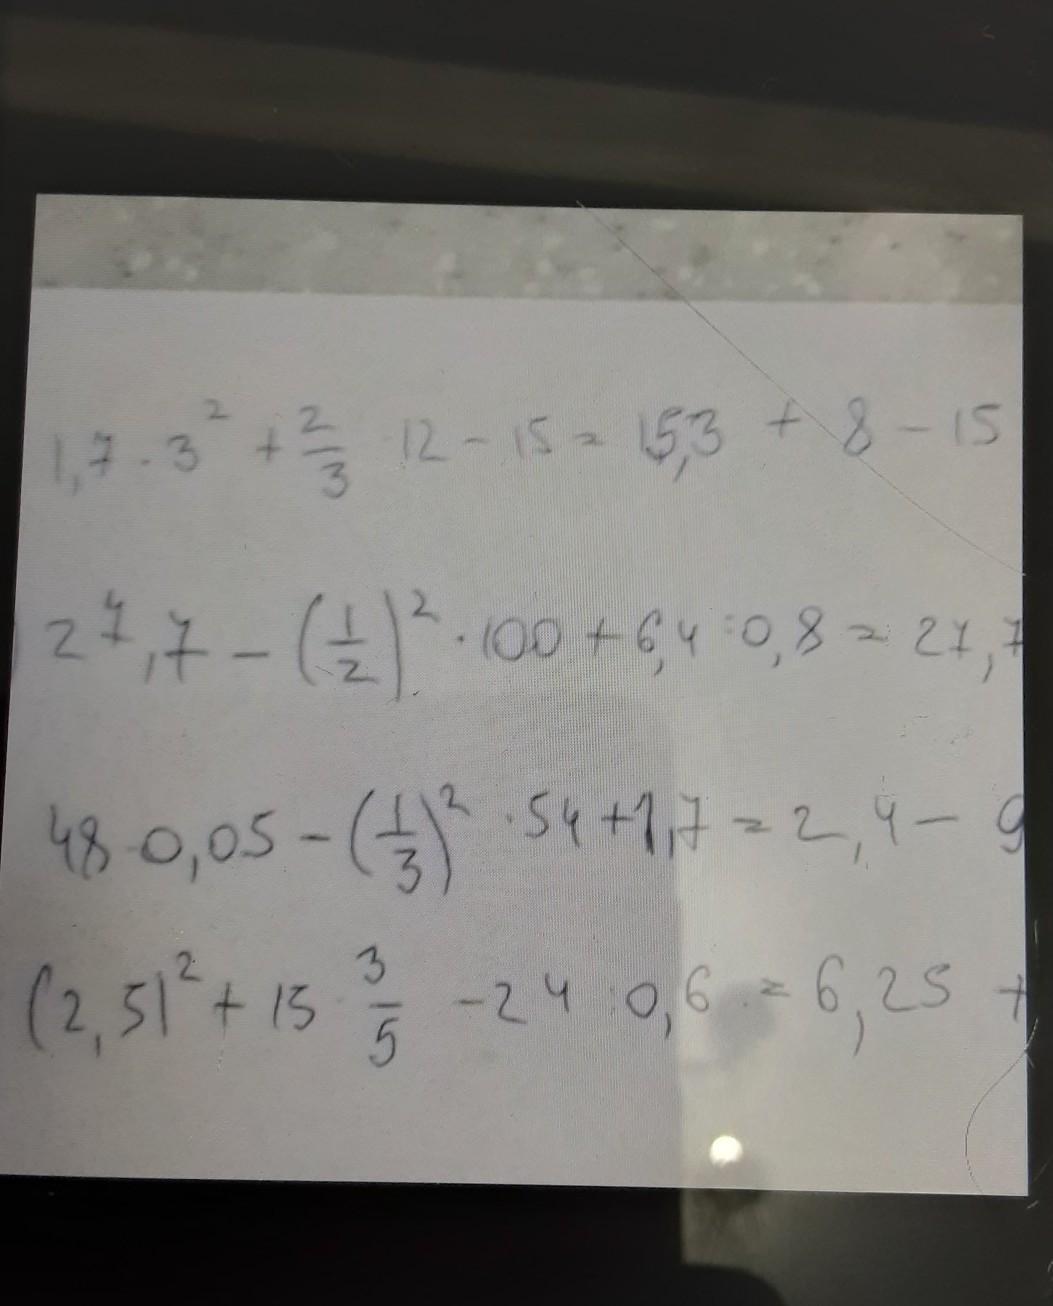 1,7 · 3² + 2/3 · 12 - 15 = 15,3 + 8 - 15
27,7 - (1/2)² · 100 + 6,4 : 0,8 = 27,7
48 · 0,05 - (1/3)² · 54 + 1,7 = 2,4 -
(2,5)² + 15 · 3/5 - 24 : 0,6 = 6,25 +